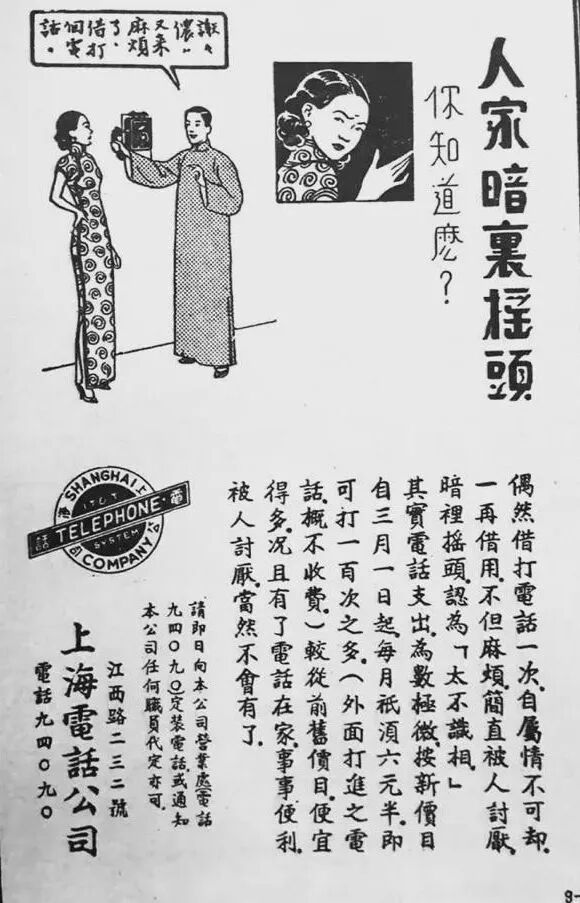 人家暗裏搖頭
你知道麽？
謝々
儂，
又來
麻煩
了，
借打
個電
話。
偶然借打電話一次，自屬情不可却，
一再借用，不但麻煩，簡直被人討厭，
暗裡搖頭，認為「太不識相。」
其實電話支出，為數極微，按新價目
自三月一日起，每月祇須六元半，即
可打一百次之多，（外面打進之電
話，概不收費，）較從前舊價目，便宜
得多，况且有了電話在家，事事便利，
被人討厭，當然不會有了。
請即日向本公司營業處電話
九四〇九〇定裝電話，或通知
本公司任何職員代定亦可，
江西路二三二號
上海電話公司
電話九四〇九〇
上海
SHANGHAI
電話
TELEPHONE
SYSTEM
COMPANY
公司
9-